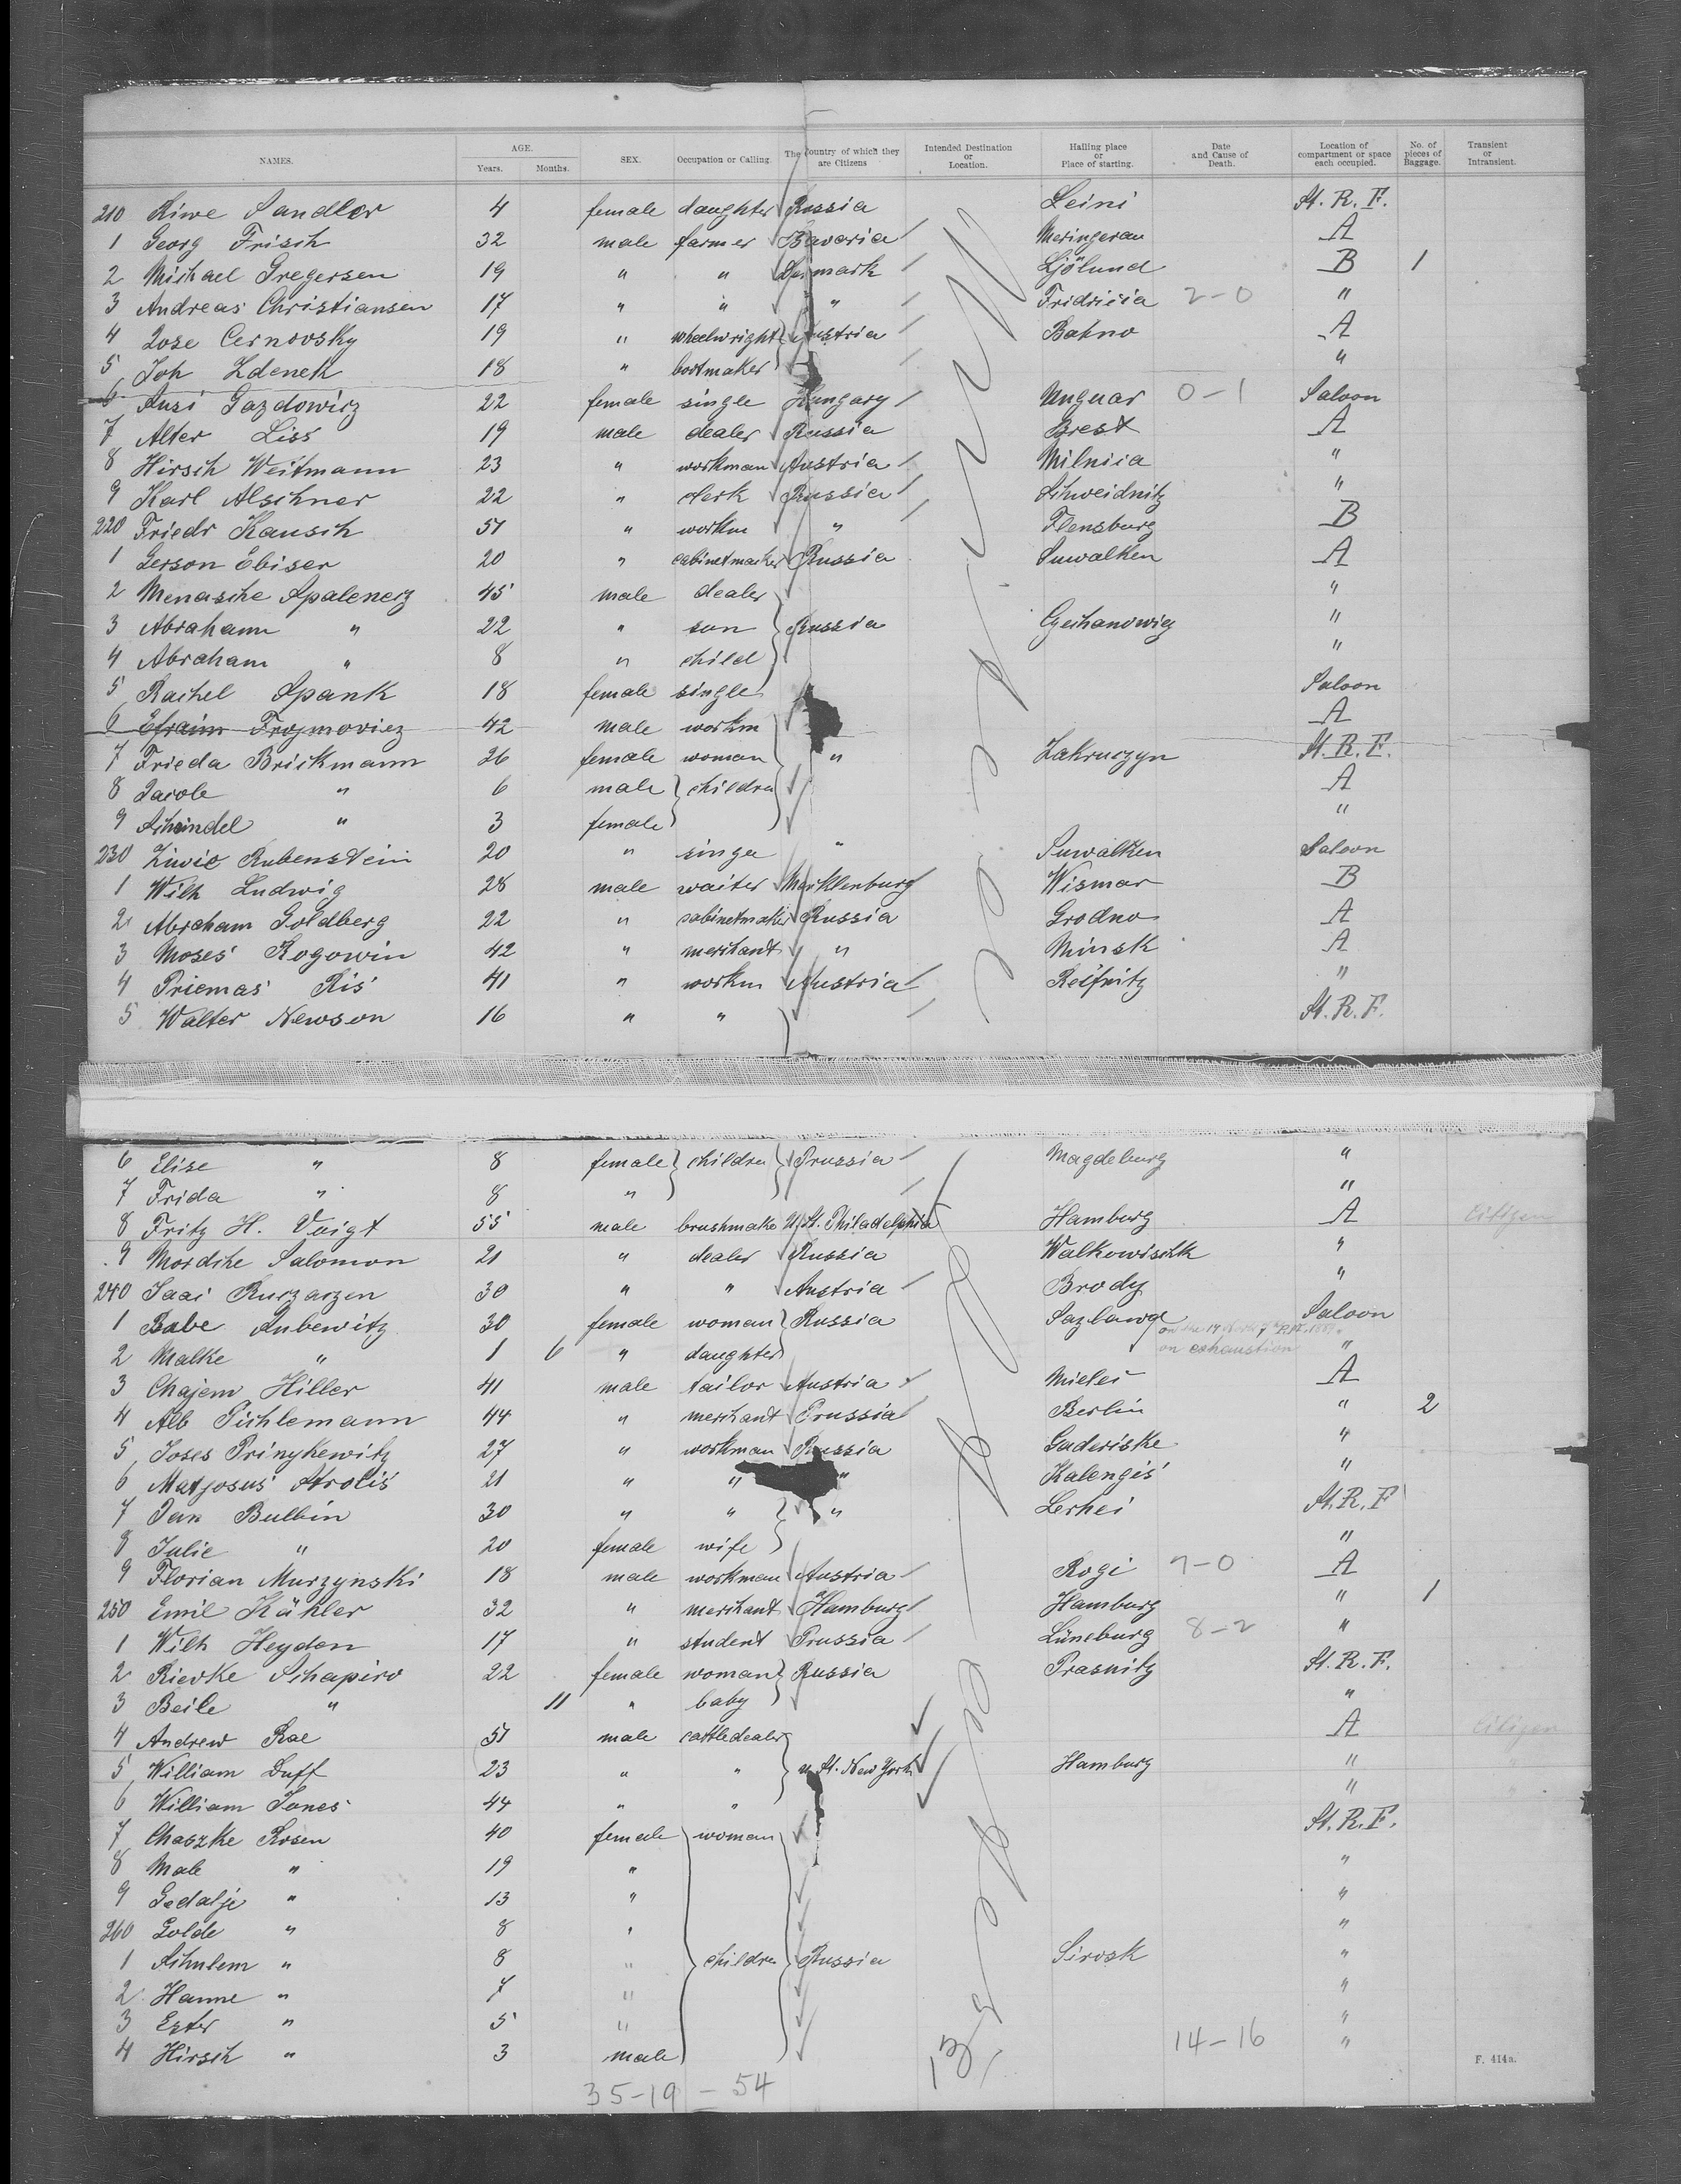 NAMES. AGE. Years. Months. SEX. Occupation or Calling The Country of which they are Citizens Intended Destination or Location. Halling place or Place of starting. Date and Cause of Death. Location of compartment or space each occupied. No. of pieces of Baggage. Transient or Intransient.
210 Riwe Sandler 4 female daughter Russia Leini St. R. F.
1 Georg Frisch 32 male farmer Bavaria Meringerau A
2 Michael Gregersen 19 " " Denmark Ljölund B 1
3 Andreas Christiansen 17 " " " Fridricia 2-0 "
4 Jose Cernovsky 19 " wheelwright Austria Bahno A
5 Joh Zdenek 18 " bootmaker "
6 Anzi Gazdowicz 22 female single Hungary Unguar 0-1 Saloon
7 Alter Liss 19 male dealer Russia Brest A
8 Hirsch Weitmann 23 " workman Austria Milnica "
9 Karl Alschner 22 " clerk Prussia Schweidnitz "
220 Friedr Kausch 51 " workm " Flensburg B
1 Gerson Ebiser 20 " cabinetmacker Russia Suwalken A
2 Menasche Spalenerz 45 male dealer "
3 Abraham " 22 " son Russia Czechanowicz "
4 Abraham " 8 " child "
5 Rachel Spank 18 female single Saloon
6 Efraim Frojmovicz 42 male workm A
7 Frieda Brickmann 26 female woman " Zakruczyn St. R. F.
8 Jacob " 6 male children A
9 Scheindel " 3 female "
230 Ziwie Rubenstein 20 " singe " Suwalken Saloon
1 Wilh Ludwig 28 male waiter Mecklenburg Wismar B
2 Abraham Goldberg 22 " cabinetmaker Russia Grodno A
3 Moses Rogowin 42 " merchant " Minsk A
4 Priemas Ris 41 " workm Austria Reifnitz "
5 Walter Newson 16 " " St. R. F.
6 Elise " 8 female children Prussia Magdeburg "
7 Frida " 8 " "
8 Fritz H. Voigt 55 male brushmake U. St. Philadelphia Hamburg A Citizen
9 Mordche Salomon 21 " dealer Russia Walkowischk "
240 Isaac Rurzarzen 30 " " Austria Brody "
1 Babe Lubewitz 30 female woman Russia Sazlawa Saloon
2 Malke " 1 6 " daughter on exhaustion "
3 Chajem Hiller 41 male tailor Austria Mielec A
4 Alb Pichlemann 44 " merchant Prussia Berlin " 2
5 Joses Prinykewitz 27 " workman Russia Gaderiske "
6 Matjosus Strolis 21 " " " Kalengis "
7 Jan Bulbin 30 " " " Lerhei St. R. F
8 Julie " 20 female wife "
9 Florian Murzynski 18 male workman Austria Rogi 7-0 A
250 Emil Kähler 32 " merchant Hamburg Hamburg " 1
1 Wilh Heyden 17 " student Prussia Lüneburg 8-2 "
2 Riewke Schapiro 22 female woman Russia Prasnitz St. R. F.
3 Beile " 11 " baby "
4 Andrew Rae 51 male cattledealer A Citizen
5 William Duff 23 " " U. St. New York Hamburg "
6 William Jones 44 " " "
7 Chaszke Rosen 40 female woman St. R. F.
8 Male " 19 " "
9 Gedalje " 13 " "
260 Golde " 8 " "
1 Schulem " 8 " children Russia Sirosk "
2 Hanne " 7 " "
3 Ester " 5 " "
4 Hirsch " 3 male 14-16 "
F. 414a.
35-19 - 54